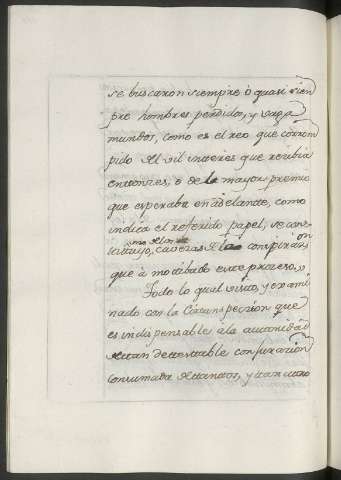 se buscaron siempre ò quasi siem
pre hombres perdidos, y vaga
mundos, como es el reo que corrom
pido del vil interes que recibia
entonzes, o de la mayor premio
que esperaba en adelante, como
indica el referido papel, se cons
tituyo, cavezas de la conspiracion
que à motibado este prozeso,,
Todo lo qual visto, y exami
nado con la circunspeccion que
es indispensable à la
de tan detestable conjurazion
consumada de tantos, y tan